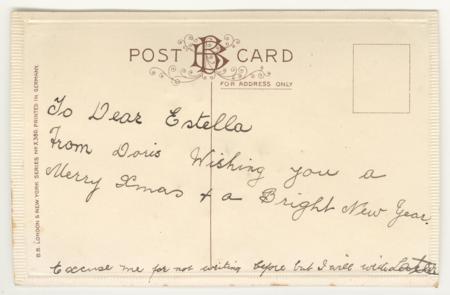 POST BB CARD
FOR ADDRESS ONLY
B.B. LONDON & NEW YORK. SERIES No X.380. PRINTED IN GERMANY.
To Dear Estella
From Doris Wishing you a
Merry Xmas + a Bright New Year.
Excuse me for not writing before but I will write Later